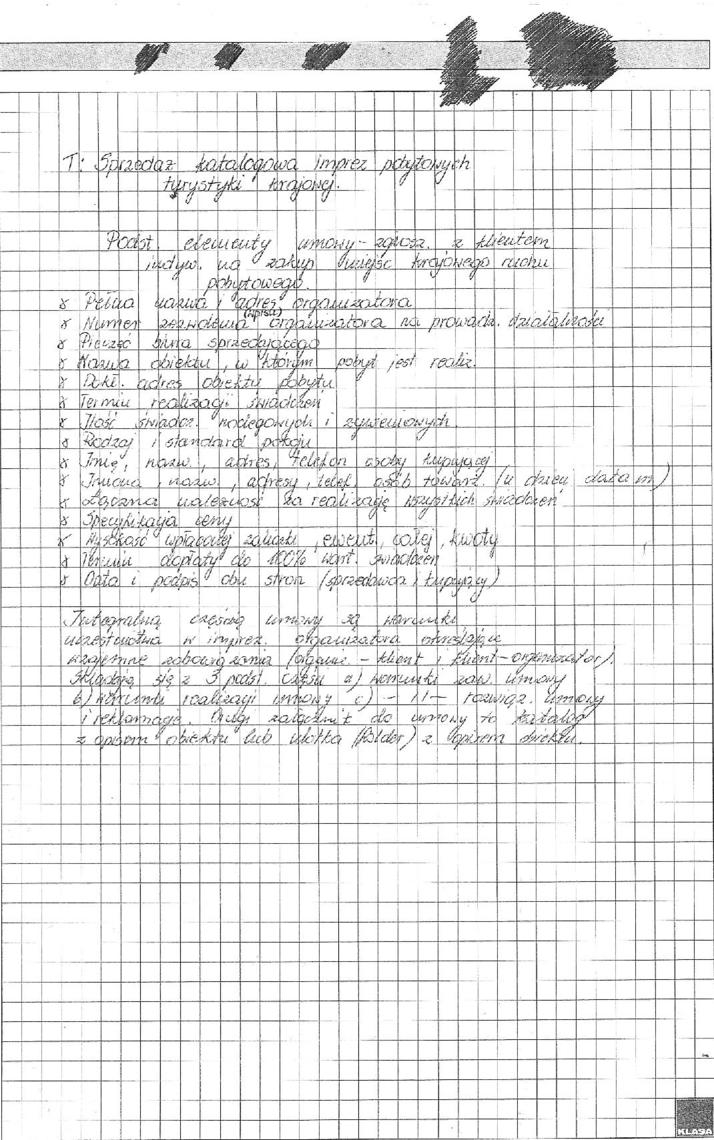 T: Sprzedaż katalogowa imprez pobytowych
turystyki krajowej.
Podst. elementy umowy - zgłosz. z klientem
indyw. na zakup miejsc krajowego ruchu
pobytowego.
Pełna nazwa i adres organizatora
Numer zezwolenia (wpisu) organizatora na prowadz. działalności
Pieczęć biura sprzedającego
Nazwa obiektu, w którym pobyt jest realiz.
Dokł. adres obiektu pobytu
Termin realizacji świadczeń
Ilość świadcz. noclegowych i żywieniowych
Rodzaj i standard pokoju
Imię, nazw., adres, telefon osoby kupującej
Imiona, nazw., adresy, telef. osób towarz. (u dzieci data ur.)
Łączna należność za realizację wszystkich świadczeń
Specyfikacja ceny
Wysokość wpłaconej zaliczki, ewent. całej kwoty
Termin dopłaty do 100% wart. świadczeń
Data i podpis obu stron (sprzedawca i kupujący)
Integralną częścią umowy są warunki
uczestnictwa w imprez. organizatora określające
wzajemne zobowiązania (organiz. - klient i klient - organizator).
Składają się z 3 podst. części a) warunki zaw. umowy
b) warunki realizacji umowy c) -11- rozwiąz. umowy
i reklamacje. Drugi załącznik do umowy to katalog
z opisem obiektu lub ulotka (folder) z opisem obiektu.
KLASA